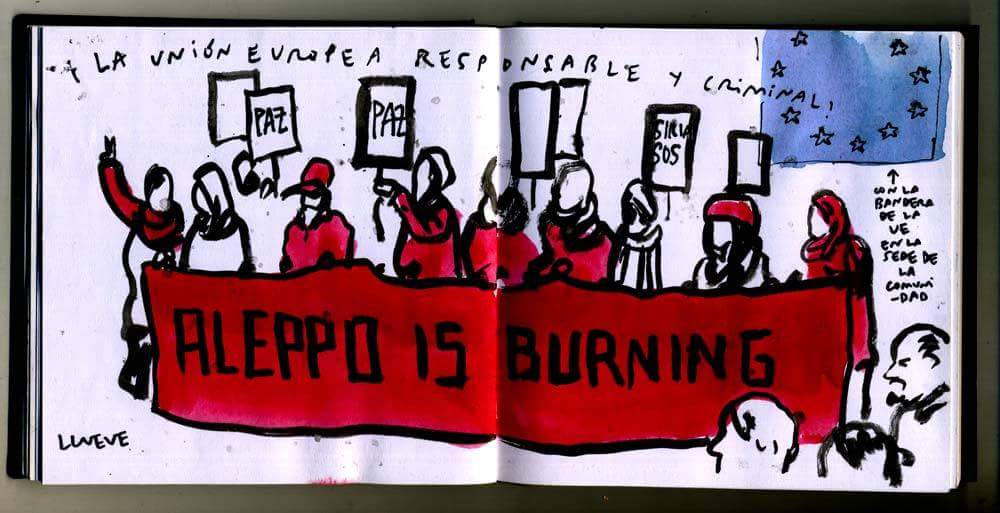 ¡LA UNIÓN EUROPEA RESPONSABLE Y CRIMINAL!
PAZ
PAZ
SIRIA
SOS
↑
CON LA
BANDERA
DE LA
UE
EN LA
SEDE DE
LA
COMUNI
-DAD
ALEPPO IS BURNING
LLUEVE